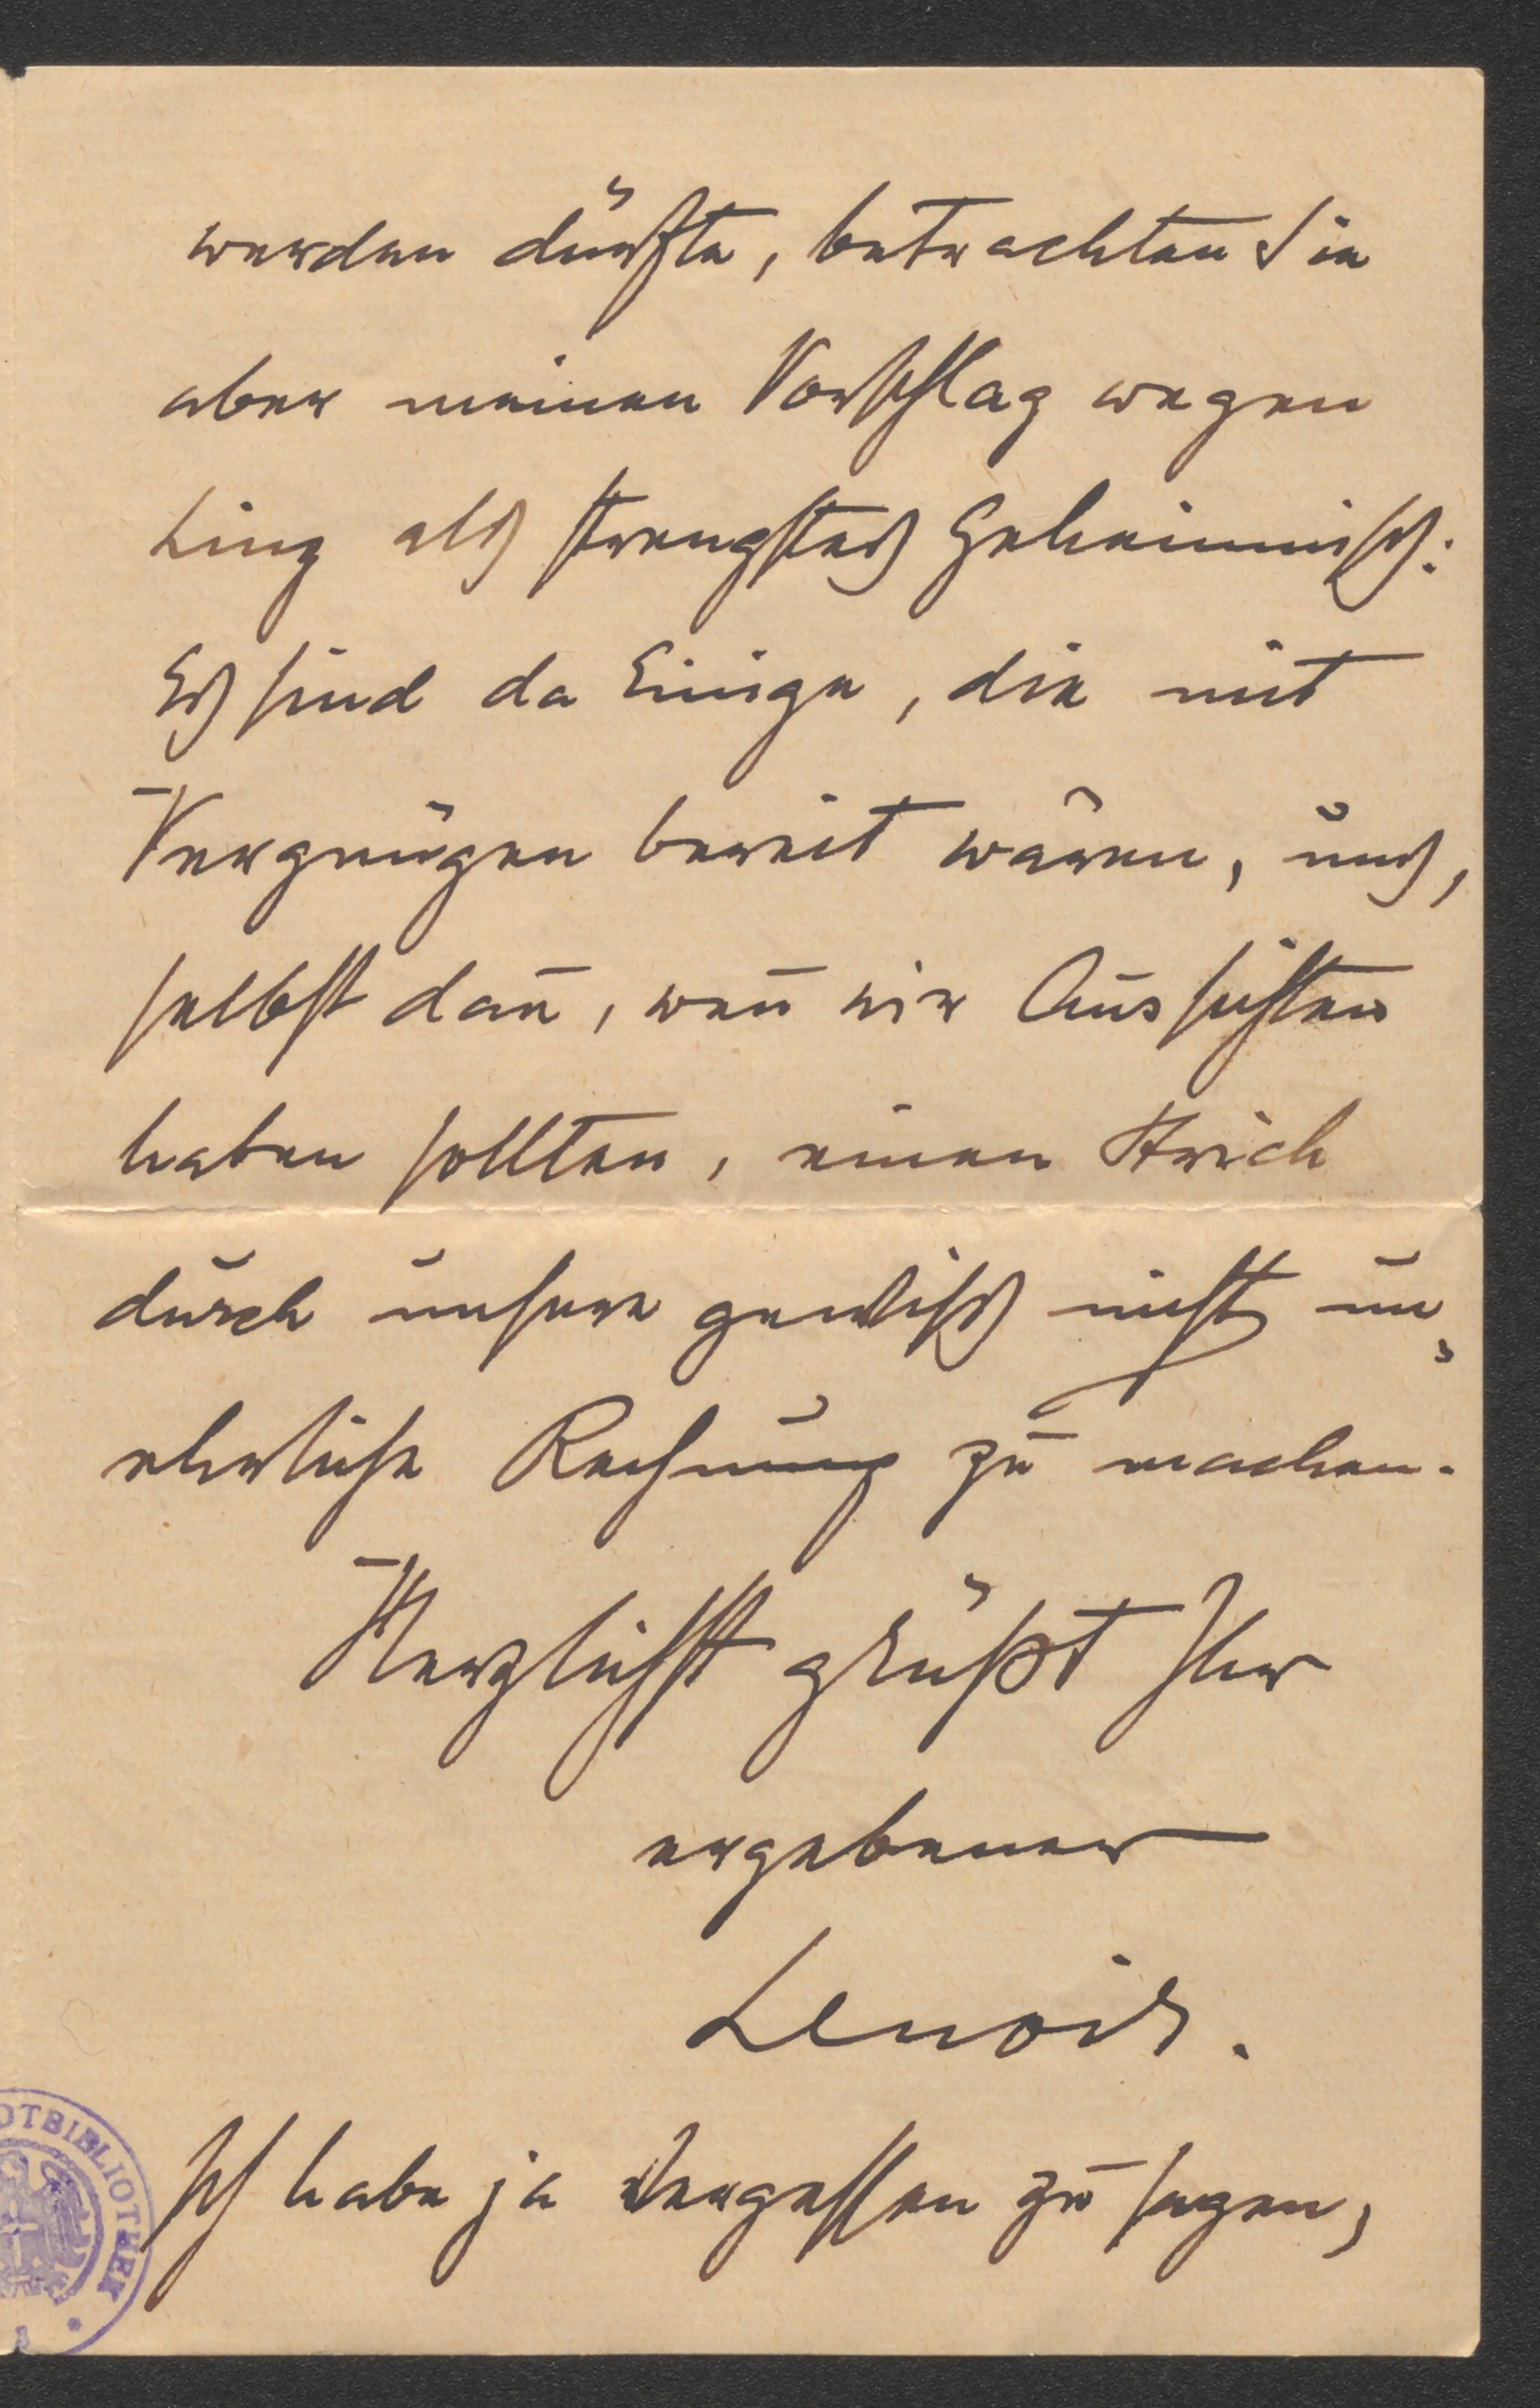 werden dürfte, betrachten Sie
aber meinen Vorschlag wegen
Ling als strengstes Geheimniss:
Es sind da Einige, die mit
Vergnügen bereit wären, uns,
selbst dan̄, wen̄ wir Aussichten
haben sollten, einen Strich
durch unsere gewiss nicht un-
ehrliche Rechnung zu machen.
Herzlichst grüßt Ihr
ergebener
Lenoir.
Ich habe ja vergessen zu sagen,
OTBIBLIOTHEK